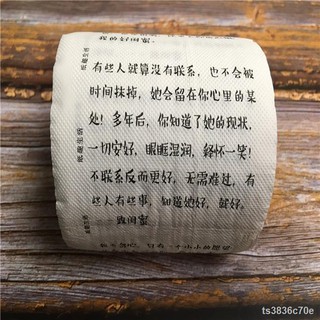 我的好，没闹。
纸趣生活
有些人就算没有联系，也不会被
时间抹掉，她会留在你心里的某
处！多年后，你知道了她的现状，
一切安好，眼眶湿润，释怀一笑！
不联系反而更好，无需难过，有
些人有些事，知道她好，就好。
——致闺蜜
纸趣生活
纸趣生活
ts3836c70e